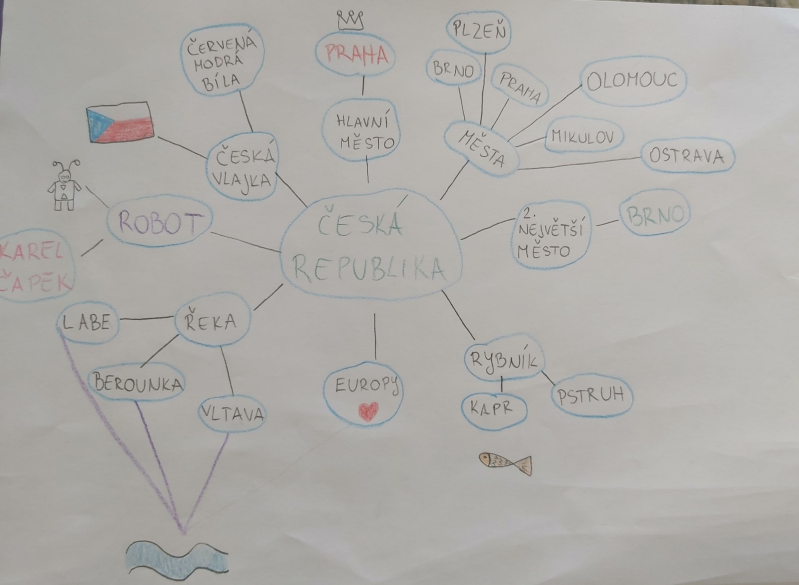 PLZEŇ
ČERVENÁ
MODRÁ
BÍLA
PRAHA
BRNO
PRAHA
OLOMOUC
HLAVNÍ
MĚSTO
MĚSTA
MIKULOV
OSTRAVA
ČESKÁ
VLAJKA
ROBOT
ČESKÁ
REPUBLIKA
2.
NEJVĚTŠÍ
MĚSTO
BRNO
KAREL
ČAPEK
LABE
ŘEKA
BEROUNKA
VLTAVA
EUROPY
RYBNÍK
KAPR
PSTRUH